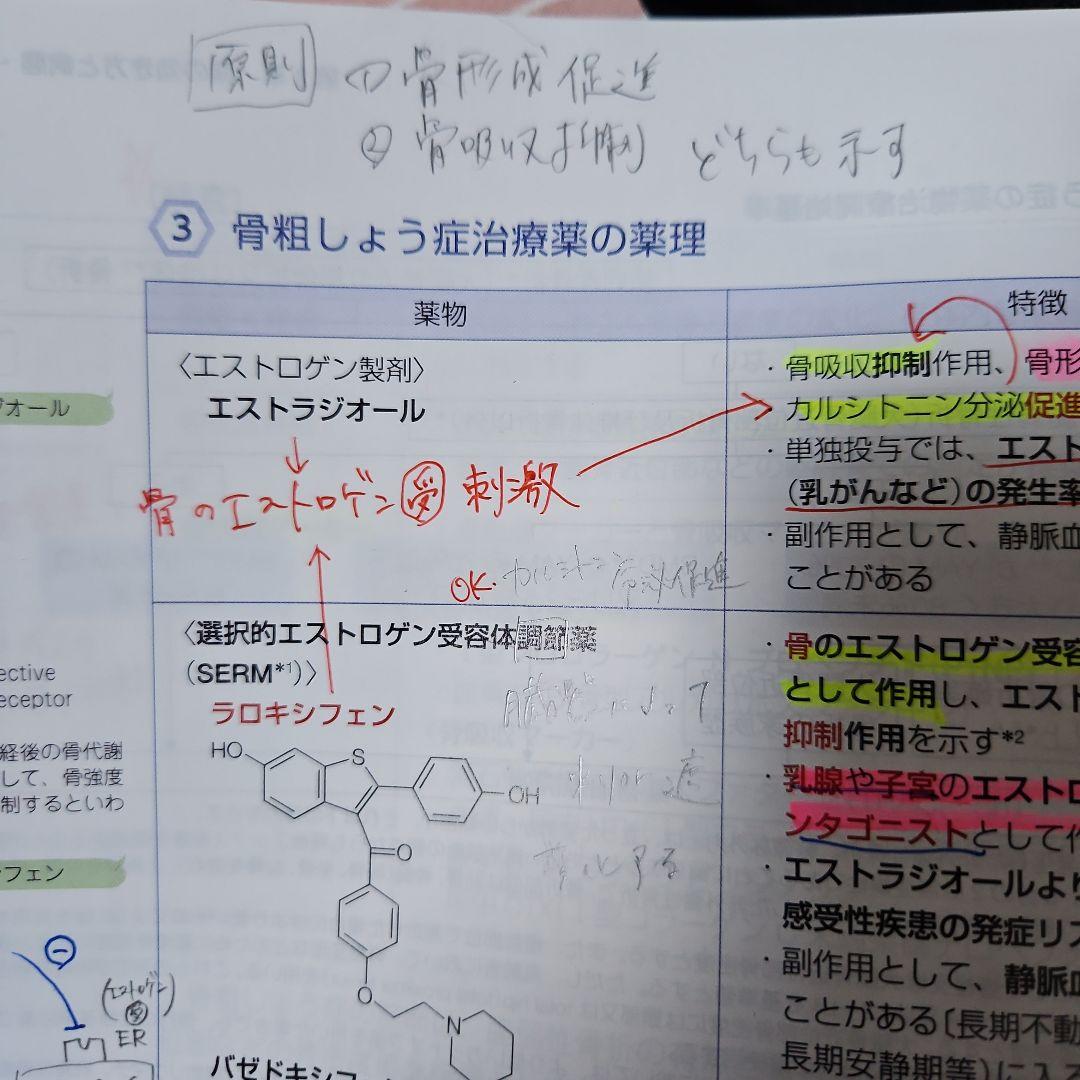 原則 ① 骨形成促進
② 骨吸収抑制 どちらも示す
3 骨粗しょう症治療薬の薬理
薬物
特徴
〈エストロゲン製剤〉
エストラジオール
骨のエストロゲン受刺激
OK.
分泌促進
・骨吸収抑制作用、骨形
カルシトニン分泌促進
・単独投与では、エスト
(乳がんなど)の発生率
・副作用として、静脈血
ことがある
〈選択的エストロゲン受容体調節薬
(SERM*1)〉
ラロキシフェン
HO
S
OH
O
O
N
臓器によって
バゼドキシフ
・骨のエストロゲン受容
として作用し、エスト
抑制作用を示す*2
・乳腺や子宮のエストロ
ンタゴニストとして作
・エストラジオールより
感受性疾患の発症リス
・副作用として、静脈血
ことがある〔長期不動
長期安静期等)に入る
ジオール
ective
eceptor
経後の骨代謝
して、骨強度
制するといわ
フェン
(エストロゲン)
受
ER